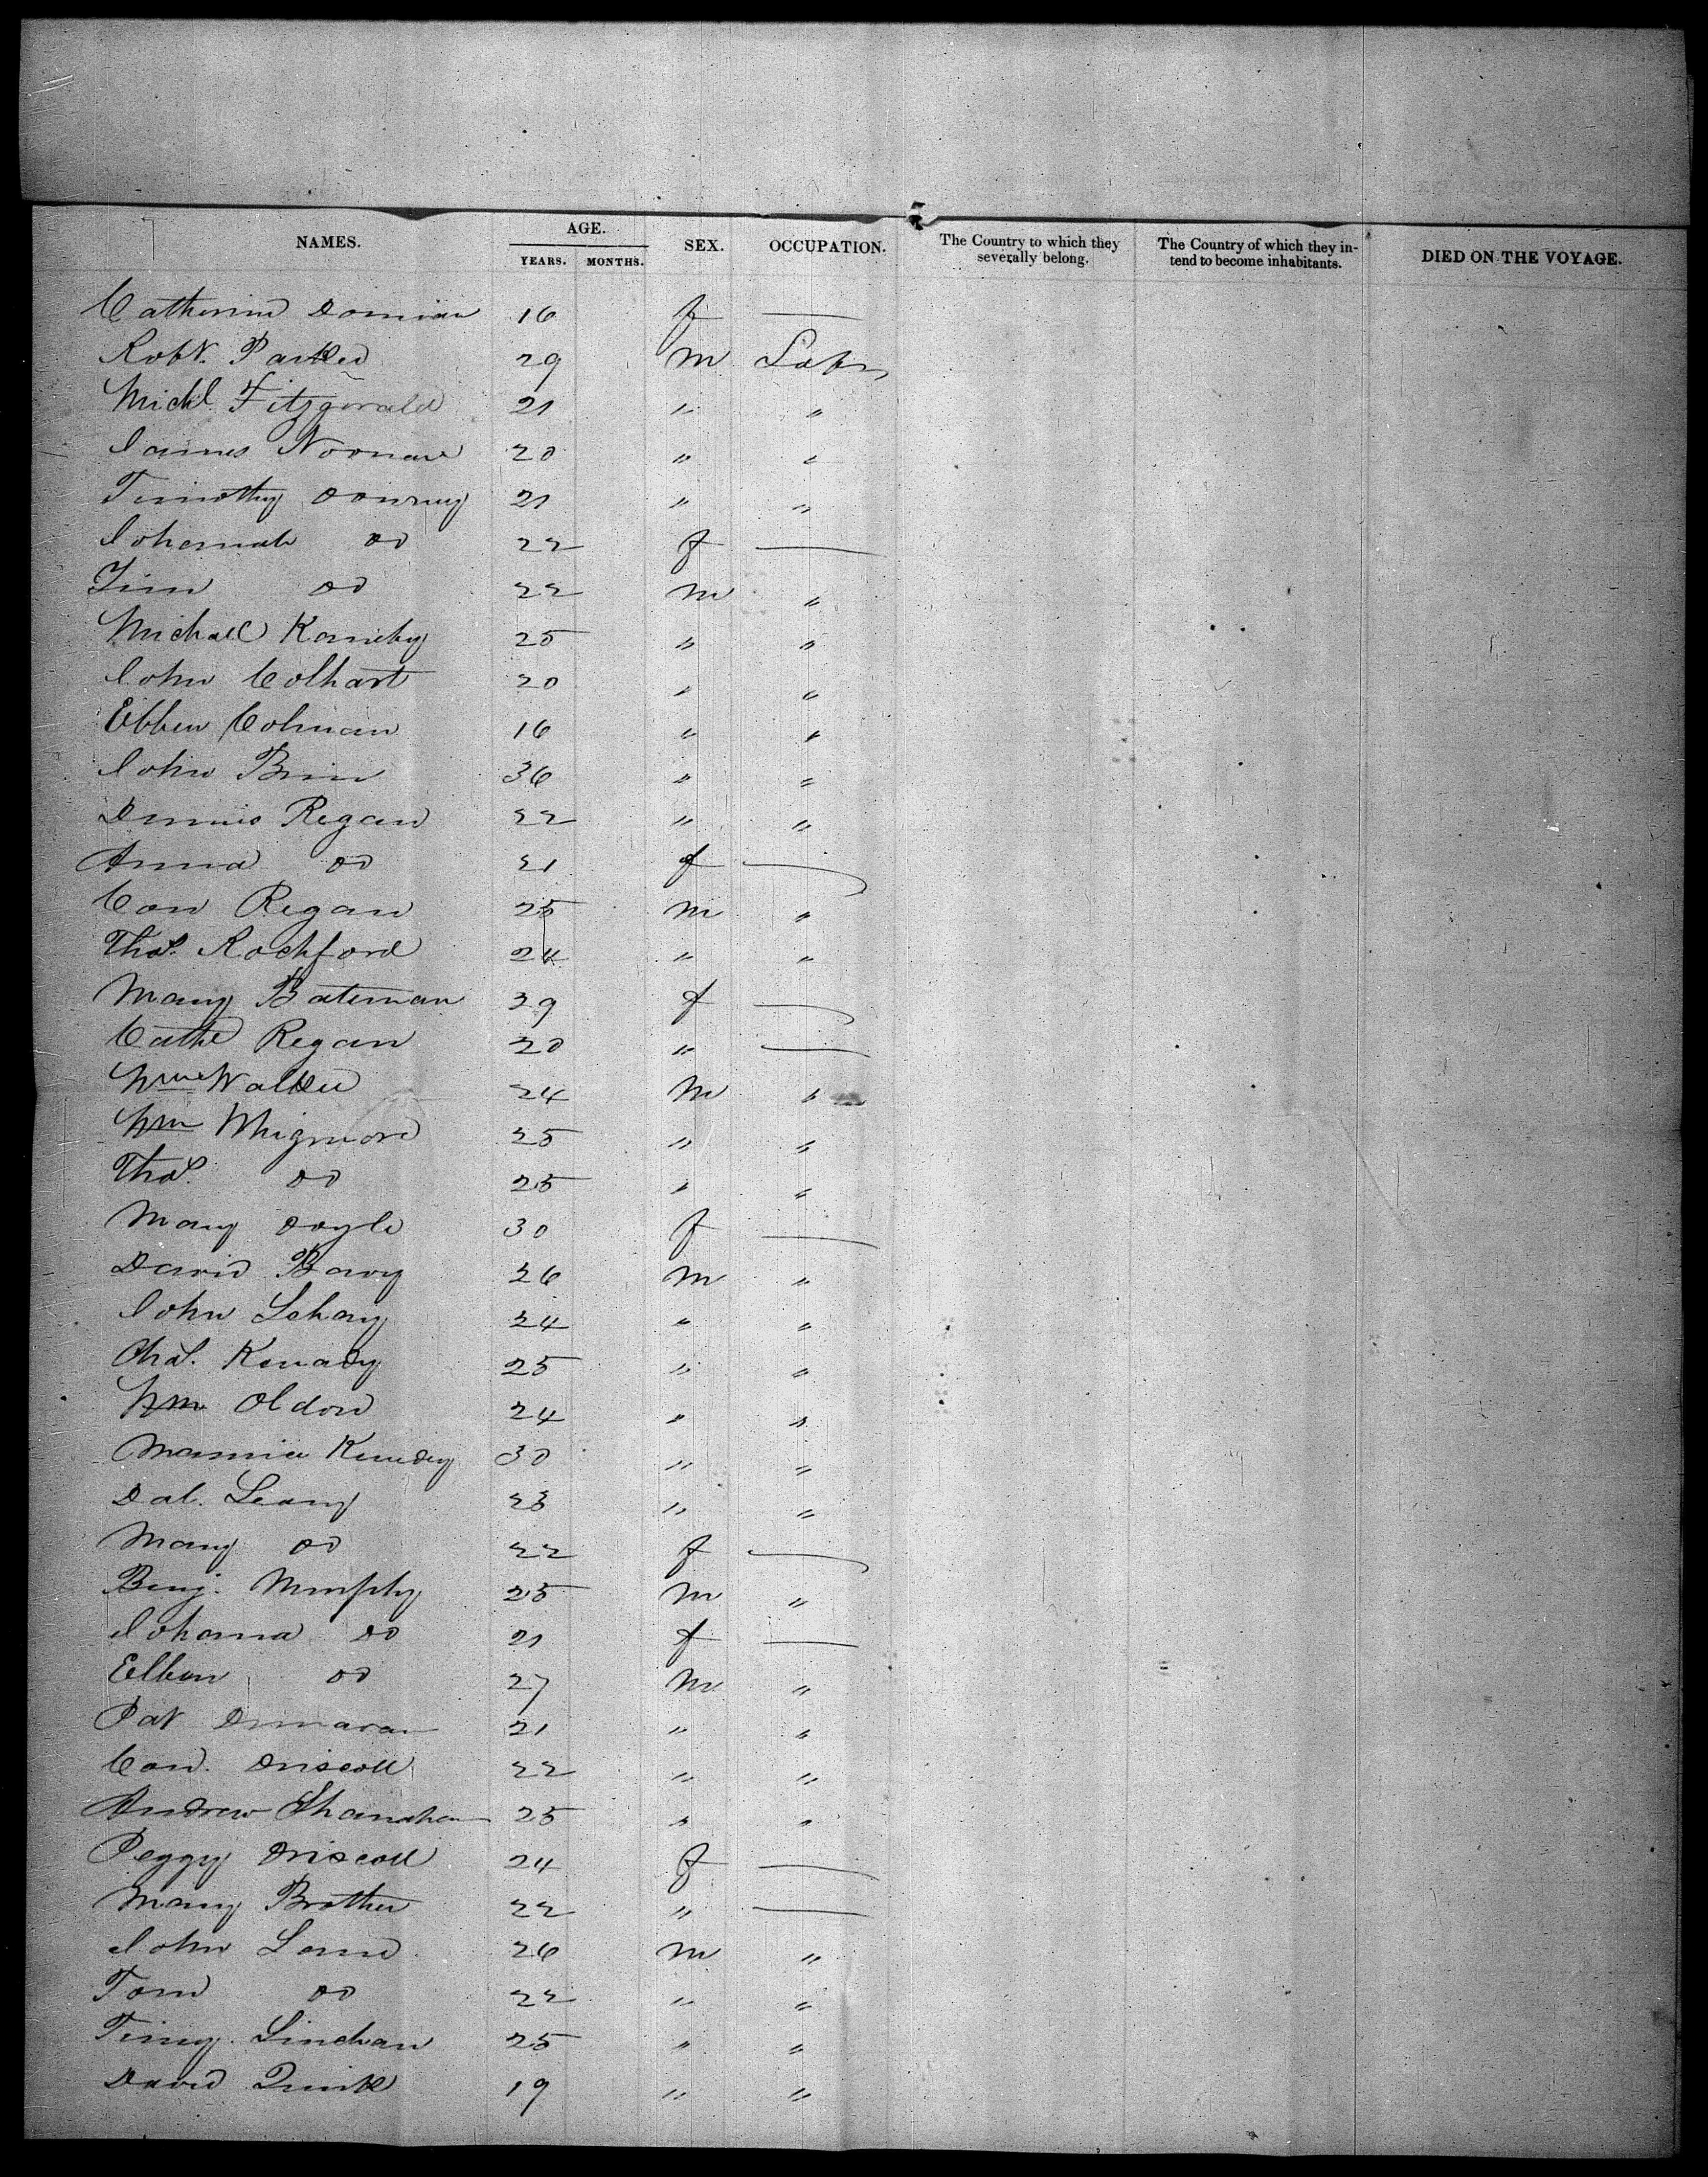 NAMES. AGE. YEARS. MONTHS. SEX. OCCUPATION. The Country to which they severally belong. The Country of which they intend to become inhabitants. DIED ON THE VOYAGE.
Catherine 16 f —
Robt. Parker 29 m Labr
Michl. Fitzgerald 21 " "
James Noonan 20 " "
Timothy Downey 21 " "
Johannah do 22 f —
Tim do 22 m "
Michael 25 " "
John Colhart 20 " "
Ebben Colman 16 " "
John Brin 36 " "
Dennis Regan 22 " "
Anna do 21 f —
Con Regan 25 m "
Thos. Rochford 24 " "
Mary Bateman 29 f —
Cathe Regan 20 " —
Wm Walker 24 m "
Wm Whigmore 25 " "
Thos. do 25 " "
Mary Doyle 30 f —
David Barry 26 m "
John Lehany 24 " "
Chas. Kenady 25 " "
Wm Oldon 24 " "
30 " "
Dal. Leany 23 " "
Mary do 22 f —
Benj. Murphy 25 m "
Johanna do 21 f —
Ellben do 27 m "
Pat 21 " "
Con. Driscoll 22 " "
Andrew Shanahan 25 " "
Peggy Driscoll 24 f —
Mary Brother 22 " —
John Lane 26 m "
Tom do 22 " "
Timy. Linehan 25 " "
David Quirk 19 " "